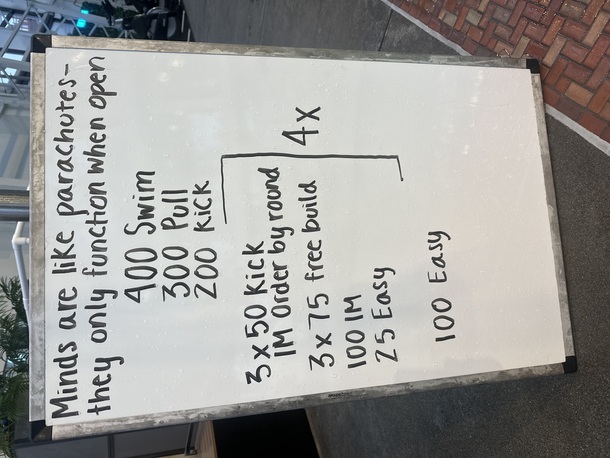 Minds are like parachutes-
they only function when open
400 Swim
300 Pull
200 Kick
3 x 50 Kick
IM Order by round
3 x 75 free build
100 IM
25 Easy
4 x
100 Easy